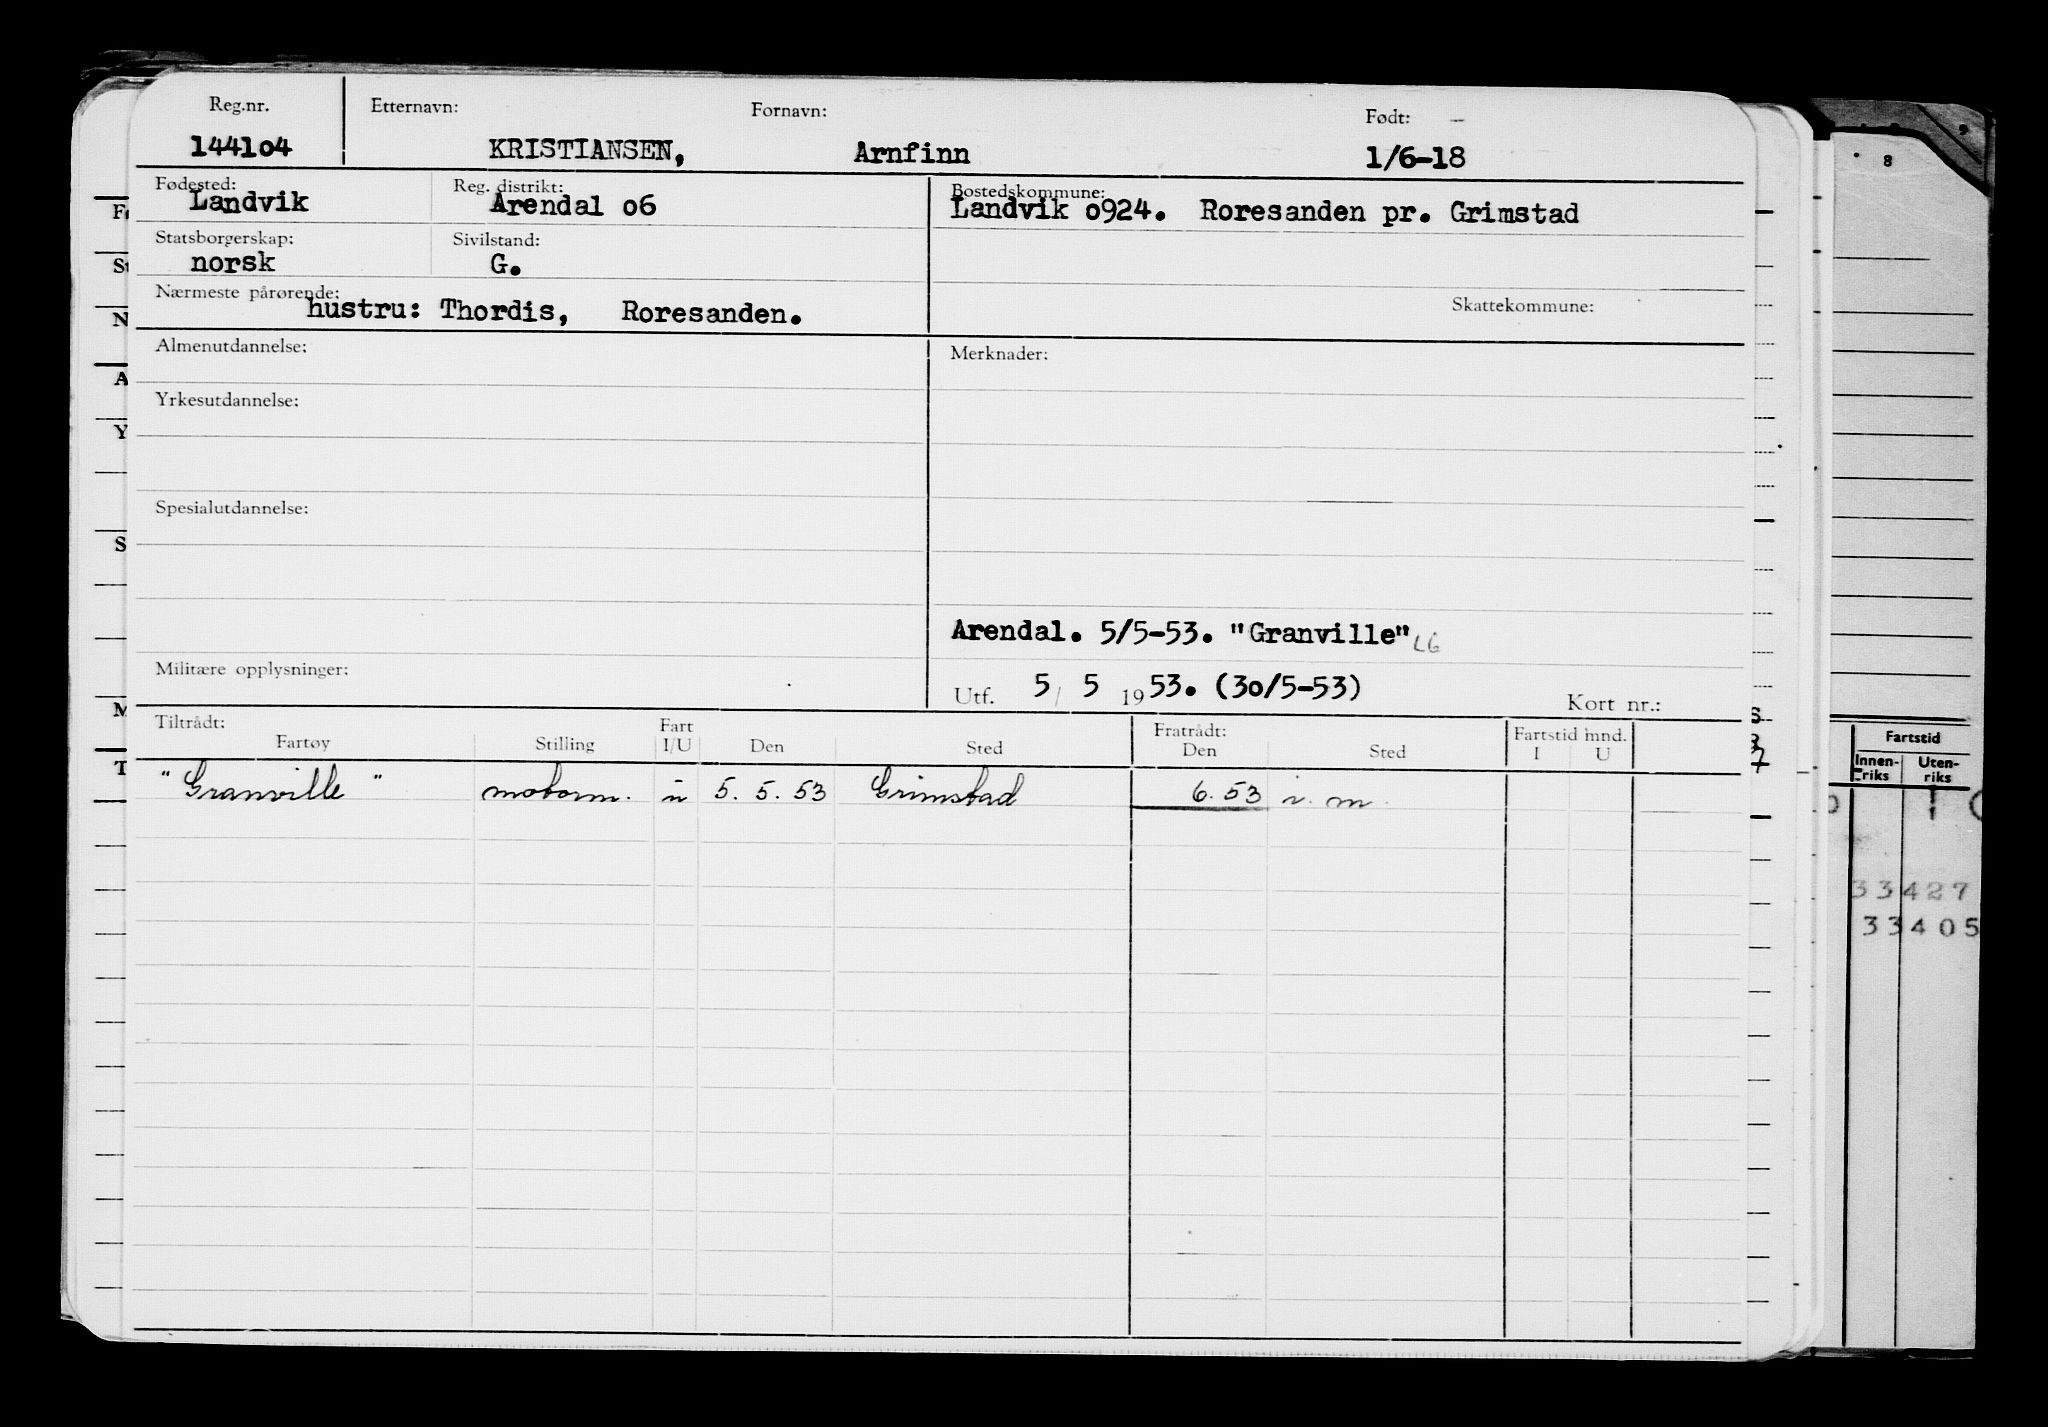 Reg.nr. Etternavn: Fornavn: Født: –
144104 KRISTIANSEN, Arnfinn 1/6-18
Fødested: Reg. distrikt: Bostedskommune:
Landvik Arendal o6 Landvik o924. Roresanden pr. Grimstad
Statsborgerskap: Sivilstand:
norsk G.
Nærmeste pårørende: Skattekommune:
hustru: Thordis, Roresanden.
Almenutdannelse: Merknader:
Yrkesutdannelse:
Spesialutdannelse:
Arendal. 5/5-53. "Granville" LG
Militære opplysninger:
Utf. 5/ 5 1953. (3o/5-53) Kort nr.:
Tiltrådt: Fart Fratrådt: Fartstid mnd.
Fartøy Stilling I/U Den Sted Den Sted I U
"Granville" motorm. u 5. 5. 53 Grimstad 6. 53 i. m.
8
Fartstid
Innen-riks Uten-riks
33427
33405